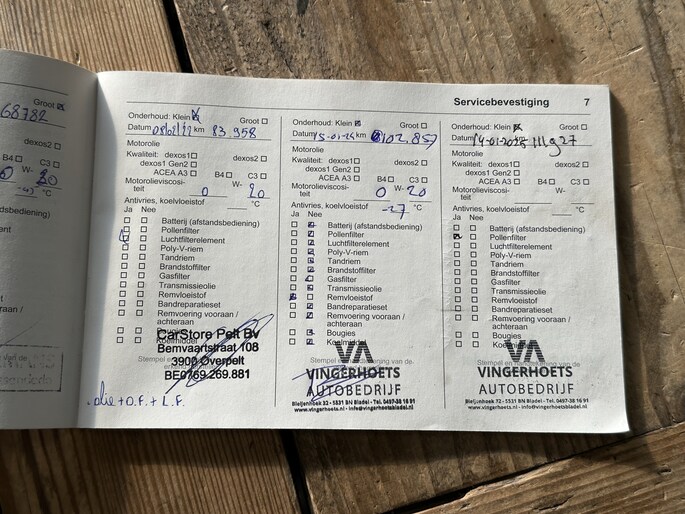 Groot ☒
68782
dexos2 ☐
B4 ☐ C3 ☐
W-
20
°C
dsbediening)
Servicebevestiging 7
Onderhoud: Klein ☒ Groot ☐
Datum 08/02/22 km 83 958
Motorolie
Kwaliteit: dexos1 ☐ dexos2 ☐
dexos1 Gen2 ☐
ACEA A3 ☐ B4 ☐ C3 ☐
Motorolieviscosi-
teit 0 W- 20
Antivries, koelvloeistof °C
Ja Nee
☐ ☐ Batterij (afstandsbediening)
☐ ☐ Pollenfilter
☐ Luchtfilterelement
☐ ☐ Poly-V-riem
☐ ☐ Tandriem
☐ ☐ Brandstoffilter
☐ ☐ Gasfilter
☐ ☐ Transmissieolie
☐ ☐ Remvloeistof
☐ ☐ Bandreparatieset
☐ ☐ Remvoering vooraan /
achteraan
☐ ☐ Bougies
☐ ☐ Koelmiddel
CarStore Pelt Bv
Bemvaartstraat 108
3900 Overpelt
BE0769.269.881
olie + O.F. + L.F.
Onderhoud: Klein ☒ Groot ☐
Datum 15-01-24 km 102.857
Motorolie
Kwaliteit: dexos1 ☐ dexos2 ☐
dexos1 Gen2 ☐
ACEA A3 ☐ B4 ☐ C3 ☐
Motorolieviscosi-
teit 0 W- 20
Antivries, koelvloeistof -27 °C
Ja Nee
☐ ☒ Batterij (afstandsbediening)
☐ ☒ Pollenfilter
☐ ☒ Luchtfilterelement
☐ ☒ Poly-V-riem
☐ ☒ Tandriem
☐ ☒ Brandstoffilter
☐ ☒ Gasfilter
☐ ☒ Transmissieolie
☒ ☐ Remvloeistof
☐ ☒ Bandreparatieset
☐ ☒ Remvoering vooraan /
achteraan
☐ ☒ Bougies
☐ ☒ Koelmiddel
VA
VINGERHOETS
AUTOBEDRIJF
Bleijenhoek 32 - 5531 BN Bladel - Tel. 0497-38 16 91
www.vingerhoets.nl - info@vingerhoetsbladel.nl
Onderhoud: Klein ☒ Groot ☐
Datum 14-01-2025 111927
Motorolie
Kwaliteit: dexos1 ☐ dexos2 ☐
dexos1 Gen2 ☐
ACEA A3 ☐ B4 ☐ C3 ☐
Motorolieviscosi-
teit W-
Antivries, koelvloeistof °C
Ja Nee
☐ ☐ Batterij (afstandsbediening)
☒ ☐ Pollenfilter
☐ ☐ Luchtfilterelement
☐ ☐ Poly-V-riem
☐ ☐ Tandriem
☐ ☐ Brandstoffilter
☐ ☐ Gasfilter
☐ ☐ Transmissieolie
☐ ☐ Remvloeistof
☐ ☐ Bandreparatieset
☐ ☐ Remvoering vooraan /
achteraan
☐ ☐ Bougies
☐ ☐ Koelmiddel
VA
VINGERHOETS
AUTOBEDRIJF
Bleijenhoek 32 - 5531 BN Bladel - Tel. 0497-38 16 91
www.vingerhoets.nl - info@vingerhoetsbladel.nl